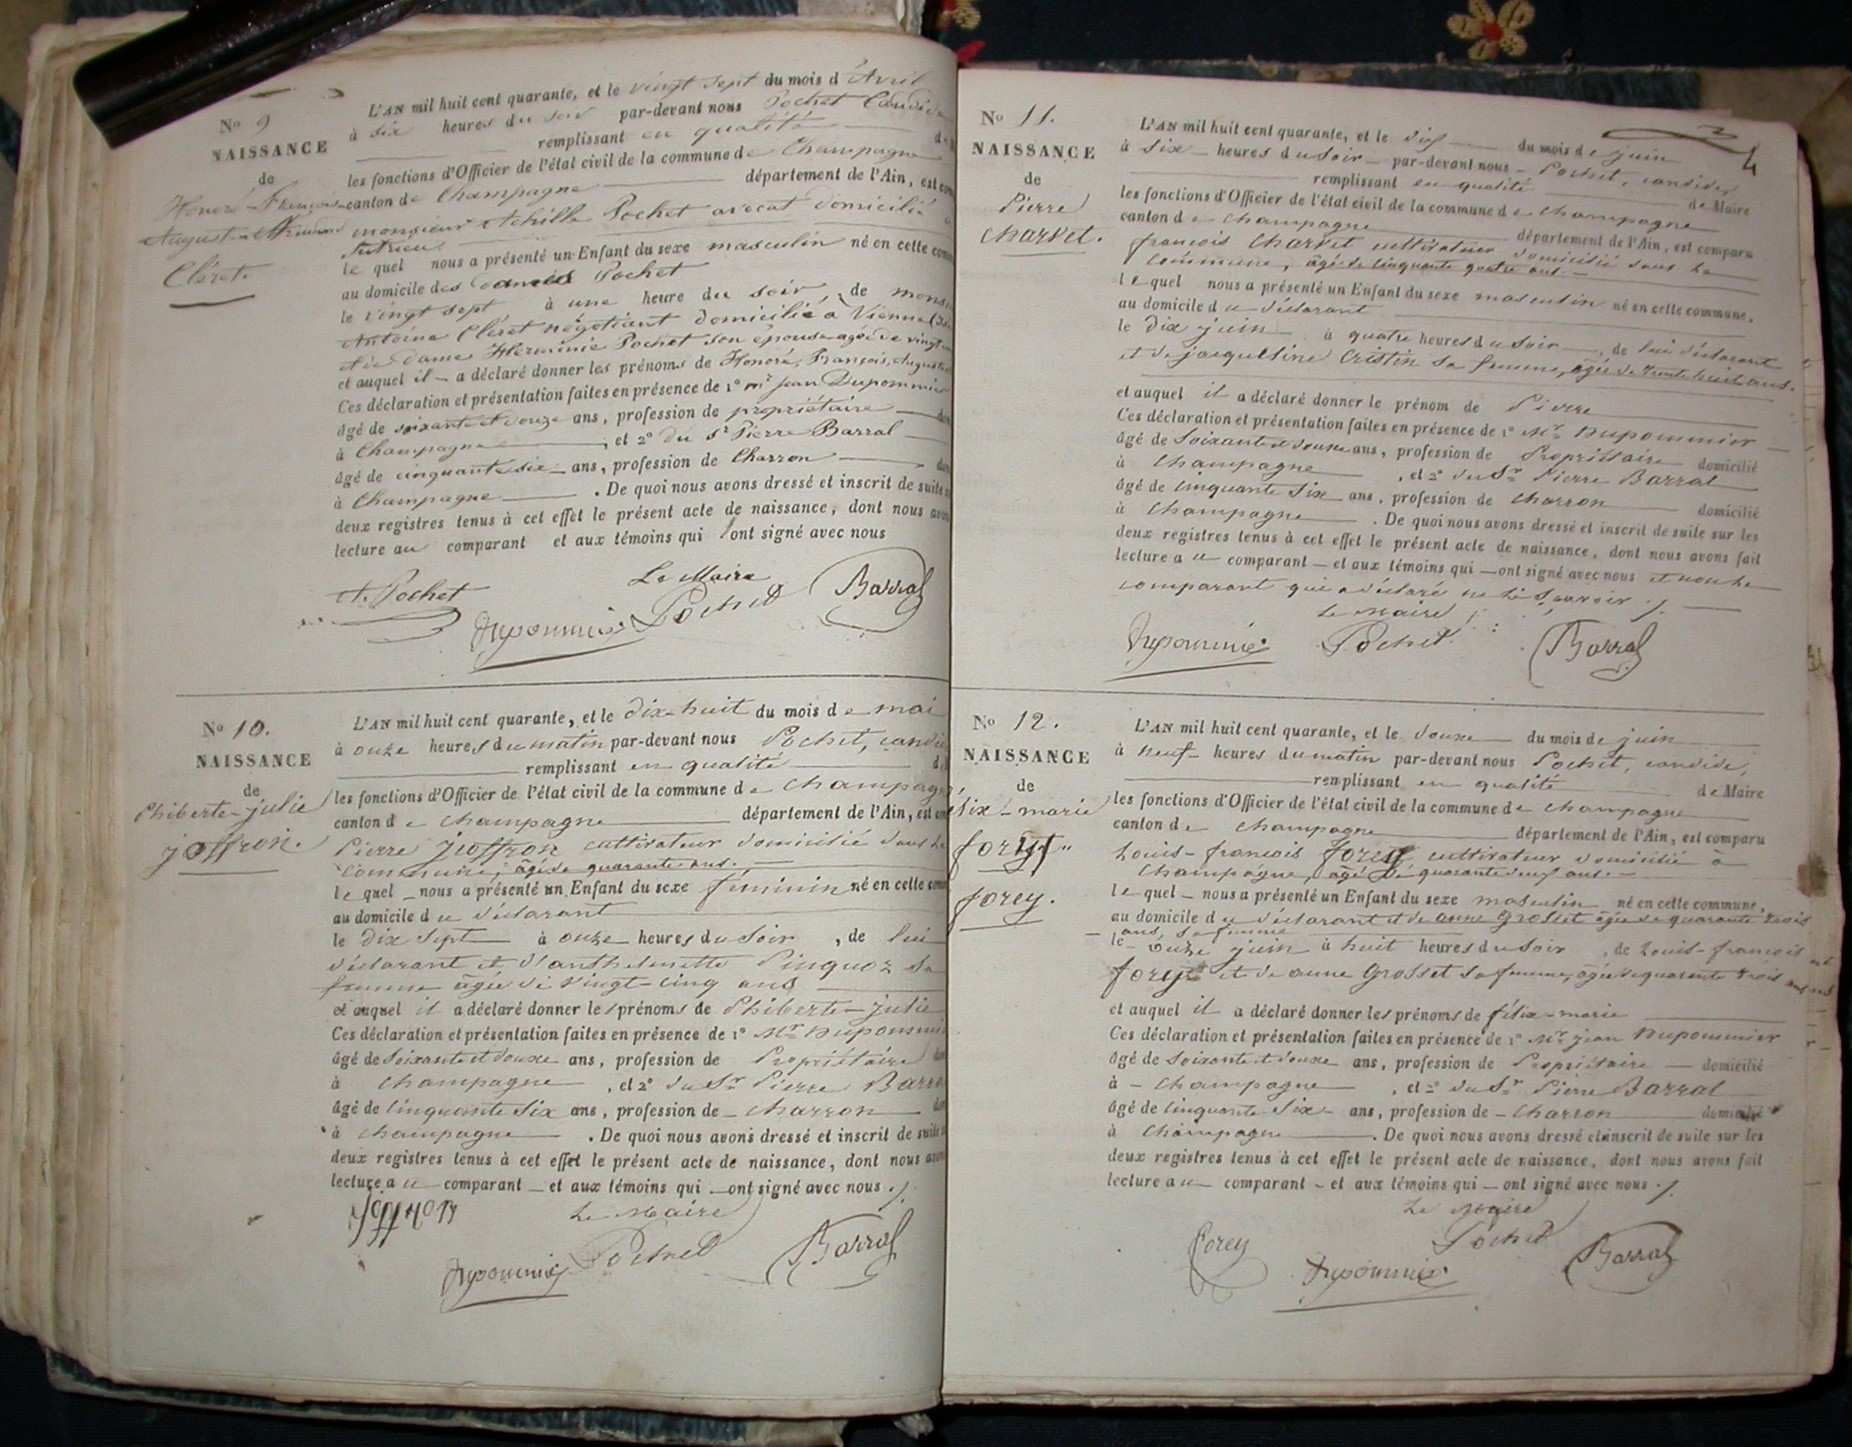 No 9
NAISSANCE
de
Honoré-François
Auguste-Armand
Cléret.
L'AN mil huit cent quarante, et le vingt sept du mois d'Avril
à six heures du soir par-devant nous Pochet Candide
remplissant en qualité de
les fonctions d'Officier de l'état civil de la commune de Champagne
canton de Champagne département de l'Ain, est com
monsieur Achille Pochet avocat domicilié à
le quel nous a présenté un Enfant du sexe masculin né en cette com
au domicile des Pochet
le vingt sept à une heure du soir, de mons
Antoine Cléret négotiant domicilié à Vienne
et de dame Herminie Pochet son épouse agée de vingt
et auquel il a déclaré donner les prénoms de Honoré, François, Auguste
Ces déclaration et présentation faites en présence de 1° mr jean Dupommier
âgé de soixante et douze ans, profession de propriétaire dom
à Champagne, et 2° du Sr Pierre Barral
âgé de cinquante six ans, profession de Charron dom
à Champagne. De quoi nous avons dressé et inscrit de suite s
deux registres tenus à cet effet le présent acte de naissance, dont nous avon
lecture au comparant et aux témoins qui ont signé avec nous
Le Maire
A. Pochet Dupommier Pochet Barral
No 10.
NAISSANCE
de
Philberte-julie
joffron.
L'AN mil huit cent quarante, et le dix-huit du mois de mai
à onze heures du matin par-devant nous Pochet, candi
remplissant en qualité d
les fonctions d'Officier de l'état civil de la commune de champagn
canton de champagne département de l'Ain, est com
Pierre joffron cultivateur domicilié dans la
commune, âgé de quarante ans.
le quel nous a présenté un Enfant du sexe feminin né en cette com
au domicile du déclarant
le dix sept à onze heures du soir, de lui
déclarant et d'anthelmette Pinquoz sa
femme âgée de vingt-cinq ans
et auquel il a déclaré donner les prénoms de Philberte-julie
Ces déclaration et présentation faites en présence de 1° Mr Dupommi
âgé de soixante et douze ans, profession de Propriétaire dom
à champagne, et 2° du Sr Pierre Barra
âgé de cinquante six ans, profession de charron dom
à champagne. De quoi nous avons dressé et inscrit de suite
deux registres tenus à cet effet le présent acte de naissance, dont nous avon
lecture au comparant et aux témoins qui ont signé avec nous ./.
joffron Le Maire
Dupommier Pochet Barral
4
No 11.
NAISSANCE
de
Pierre
Charvet.
L'AN mil huit cent quarante, et le dix du mois de juin
à six heures du soir par-devant nous Pochet, candide,
remplissant en qualité de Maire
les fonctions d'Officier de l'état civil de la commune de champagne
canton de champagne département de l'Ain, est comparu
françois Charvet cultivateur domicilié dans la
commune, âgé de cinquante quatre ans.
le quel nous a présenté un Enfant du sexe masculin né en cette commune,
au domicile du déclarant
le dix juin à quatre heures du soir, de lui déclarant
et de jacqueline Cristin sa femme, âgée de trente huit ans.
et auquel il a déclaré donner le prénom de Pierre
Ces déclaration et présentation faites en présence de 1° Mr Dupommier
âgé de soixante et douze ans, profession de Propriétaire domicilié
à champagne, et 2° du Sr Pierre Barral
âgé de cinquante six ans, profession de charron domicilié
à champagne. De quoi nous avons dressé et inscrit de suite sur les
deux registres tenus à cet effet le présent acte de naissance, dont nous avons fait
lecture au comparant et aux témoins qui ont signé avec nous et non le
comparant qui a déclaré ne le sçavoir ./.
Le Maire
Dupommier Pochet Barral
No 12.
NAISSANCE
de
félix-marie
forey.
L'AN mil huit cent quarante, et le douze du mois de juin
à neuf heures du matin par-devant nous Pochet, candide,
remplissant en qualité de Maire
les fonctions d'Officier de l'état civil de la commune de champagne
canton de champagne département de l'Ain, est comparu
Louis-françois forey, cultivateur domicilié à
champagne, âgé de quarante neuf ans.
le quel nous a présenté un Enfant du sexe masculin né en cette commune,
au domicile du déclarant et de anne Grosset âgée de quarante trois
ans, sa femme
le onze juin à huit heures du soir, de Louis-françois
forey et de anne Grosset sa femme, âgée de quarante trois ans
et auquel il a déclaré donner les prénoms de félix-marie
Ces déclaration et présentation faites en présence de 1° Mr jean Dupommier
âgé de soixante et douze ans, profession de Propriétaire domicilié
à champagne, et 2° du Sr Pierre Barral
âgé de cinquante six ans, profession de charron domicilié
à champagne. De quoi nous avons dressé et inscrit de suite sur les
deux registres tenus à cet effet le présent acte de naissance, dont nous avons fait
lecture au comparant et aux témoins qui ont signé avec nous ./.
Le Maire
forey Dupommier Pochet Barral